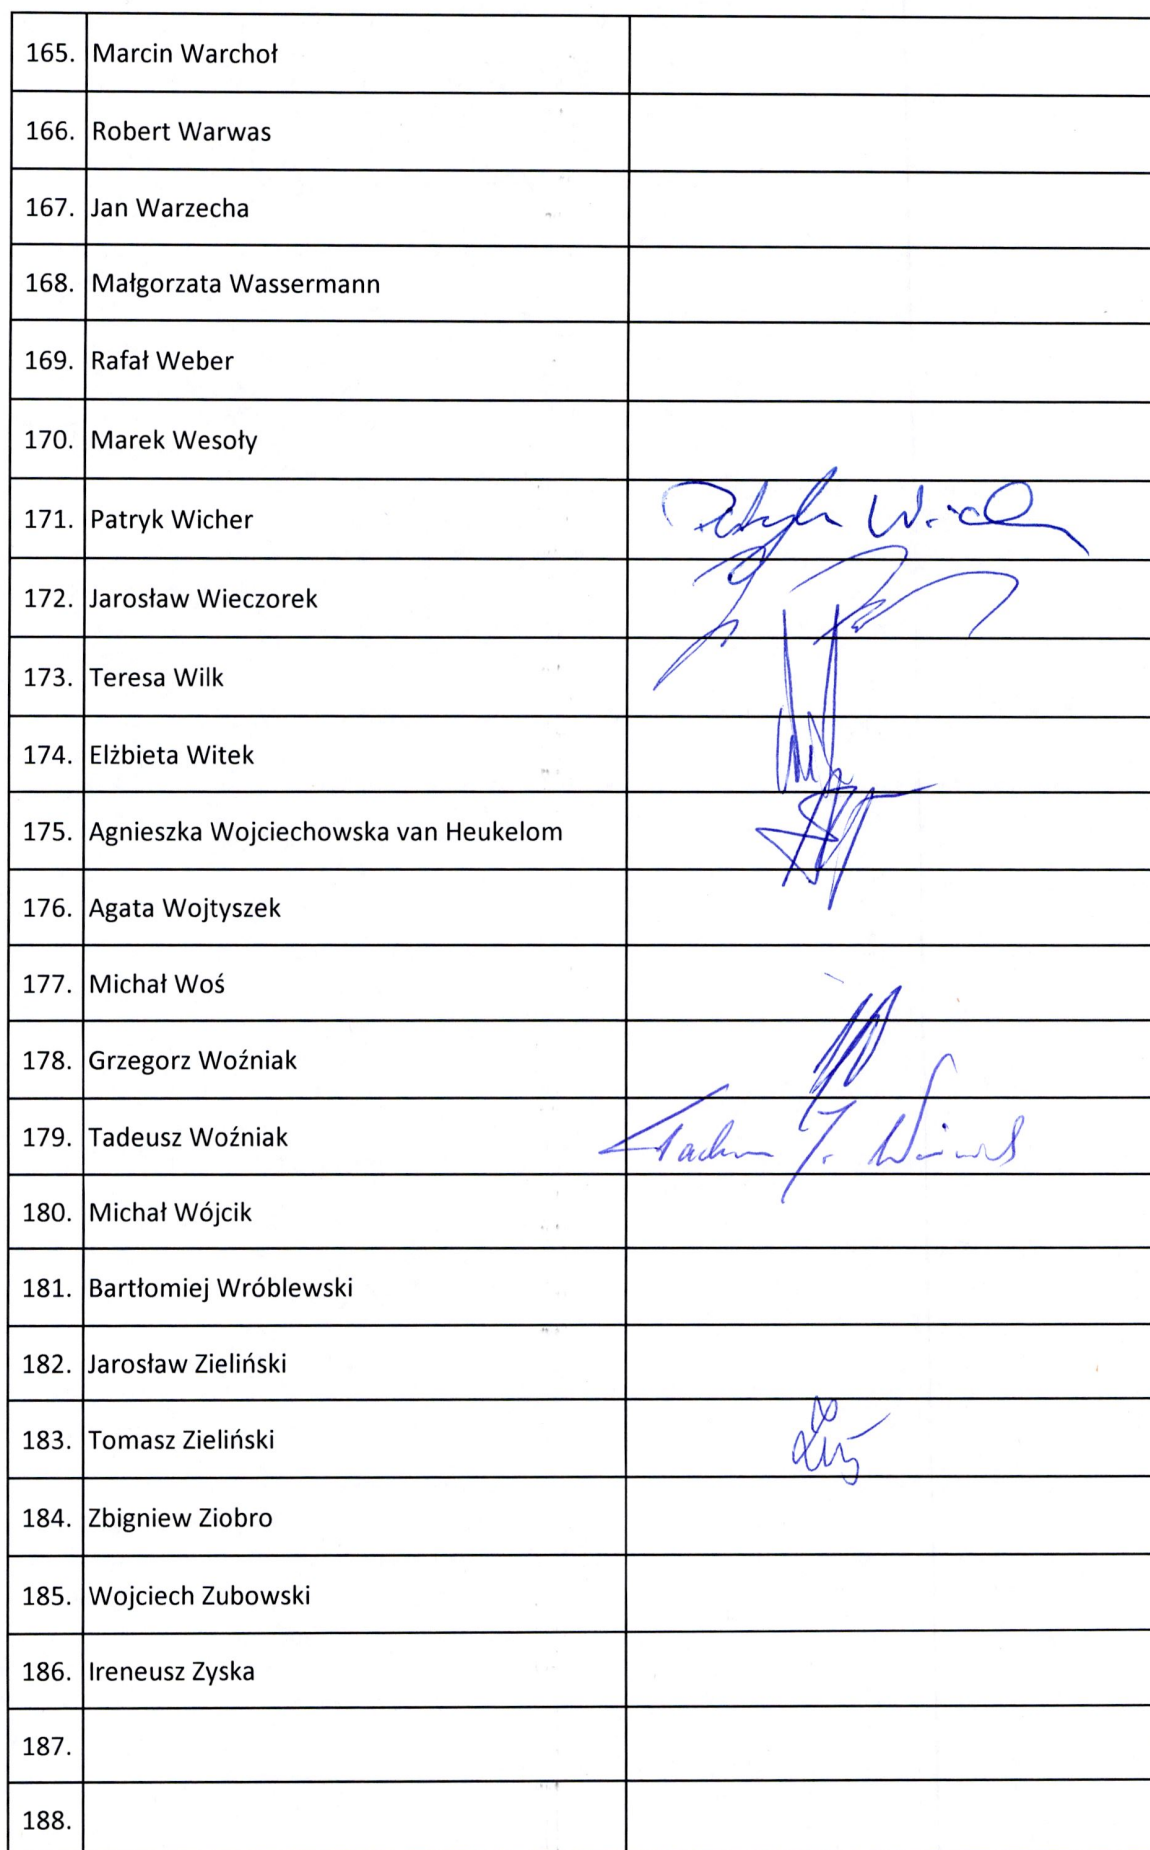 165. Marcin Warchoł
166. Robert Warwas
167. Jan Warzecha
168. Małgorzata Wassermann
169. Rafał Weber
170. Marek Wesoły
171. Patryk Wicher
172. Jarosław Wieczorek
173. Teresa Wilk
174. Elżbieta Witek
175. Agnieszka Wojciechowska van Heukelom
176. Agata Wojtyszek
177. Michał Woś
178. Grzegorz Woźniak
179. Tadeusz Woźniak
180. Michał Wójcik
181. Bartłomiej Wróblewski
182. Jarosław Zieliński
183. Tomasz Zieliński
184. Zbigniew Ziobro
185. Wojciech Zubowski
186. Ireneusz Zyska
187.
188.